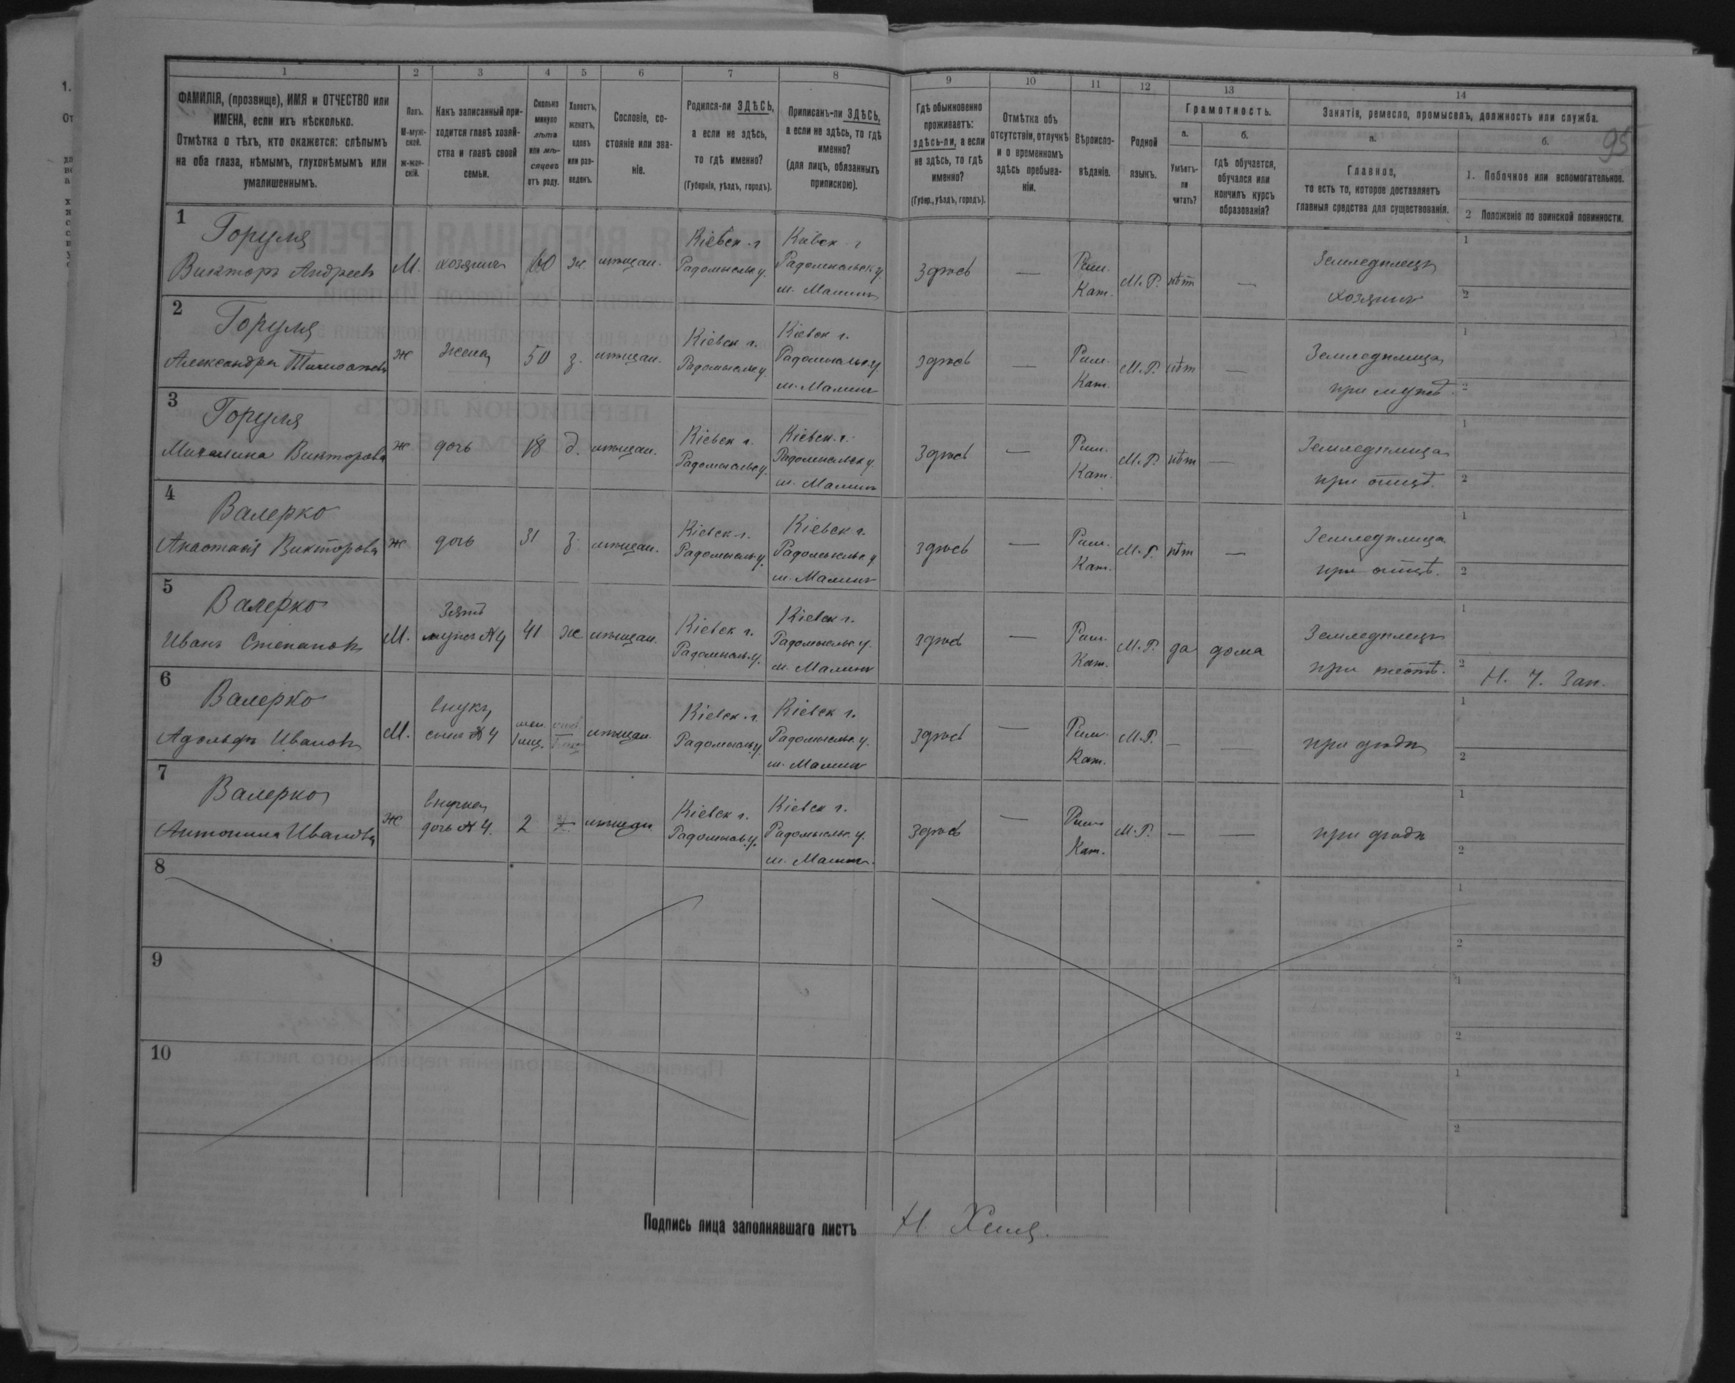 95
1 2 3 4 5 6 7 8 9 10 11 12 13 14
ФАМИЛІЯ, (прозвище), ИМЯ и ОТЧЕСТВО или ИМЕНА, если ихъ нѣсколько.
Отмѣтка о тѣхъ, кто окажется: слѣпымъ на оба глаза, нѣмымъ, глухонѣмымъ или умалишеннымъ.
Полъ.
М-мужской.
Ж-женскій.
Какъ записанный приходится главѣ хозяйства и главѣ своей семьи.
Сколько минуло лѣтъ или мѣсяцевъ отъ роду.
Холостъ, женатъ, вдовъ или разведенъ.
Сословіе, состояніе или званіе.
Родился-ли ЗДѢСЬ,
а если не здѣсь,
то гдѣ именно?
(Губернія, уѣздъ, городъ).
Приписанъ-ли ЗДѢСЬ,
а если не здѣсь, то гдѣ именно?
(для лицъ, обязанныхъ припискою).
Гдѣ обыкновенно проживаетъ: здѣсь-ли, а если не здѣсь, то гдѣ именно?
(Губер., уѣздъ, городъ).
Отмѣтка объ отсутствіи, отлучкѣ и о временномъ здѣсь пребываніи.
Вѣроисповѣданіе.
Родной языкъ.
Грамотность.
а.
Умѣетъ-ли читать?
б.
гдѣ обучается, обучался или кончилъ курсъ образованія?
Занятія, ремесло, промыселъ, должность или служба.
а.
Главное,
то есть то, которое доставляетъ главныя средства для существованія.
б.
1. Побочное или вспомогательное.
2 Положеніе по воинской повинности.
1
Горуля
Викторъ Андреевъ М. хозяинъ 60 ж мѣщан. Кіевск. г. Радомысльск у. Кіевск. г. Радомысльск у. м. Малинъ здѣсь — Рим. Кат. М.Р. нѣт — Земледѣлецъ хозяинъ
2
Горуля
Александра ж жена 50 з. мѣщан. Кіевск г. Радомысльск у. Кіевск г. Радомысльск у. м. Малинъ здѣсь — Рим. Кат. М.Р. нѣт — Земледѣлица при мужѣ
3
Горуля
Михалина Викторова ж дочь 18 д. мѣщан. Кіевск г. Радомысльск у. Кіевск г. Радомысльск у. м. Малинъ здѣсь — Рим. Кат. М.Р. нѣт — Земледѣлица при отцѣ.
4
Валерко
Анастасія Викторова ж дочь 31 з. мѣщан. Кіевск г. Радомысльск у. Кіевск г. Радомысльск у. м. Малинъ здѣсь — Рим. Кат. М.Р. нѣт — Земледѣлица при отцѣ.
5
Валерко
Иванъ Степановъ М. Зять мужъ №4 41 ж мѣщан. Кіевск г. Радомысльск у. Кіевск г. Радомысльск у. м. Малинъ здѣсь — Рим. Кат. М.Р. да дома Земледѣлецъ при тестѣ. Н. Ч. Зап.
6
Валерко
Адольфъ Ивановъ М. Внукъ, сынъ №4 мен. 1 мѣс. мѣщан. Кіевск г. Радомысльск у. Кіевск г. Радомысльск у. м. Малинъ здѣсь — Рим. Кат. М.Р. — — при дѣдѣ
7
Валерко
Антонина Иванова ж Внучка, дочь №4. 2 мѣщан. Кіевск г. Радомысльск у. Кіевск г. Радомысльск у. м. Малинъ здѣсь — Рим. Кат. М.Р. — — при дѣдѣ
8
9
10
Подпись лица заполнявшаго листъ